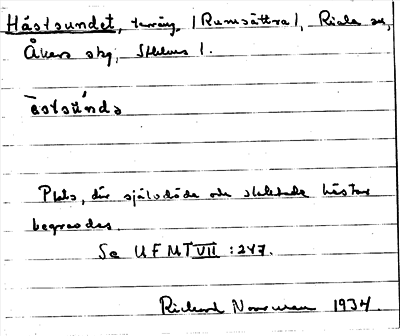 Hästsundet, terräng, (Rumsättra), Riala sn,
Åkers skg, Sthlms l.
ästsúndə
Plats, där själsdöda och skelade hästar
begravdes.
Se UFMT VII : 247.
Rickard Norrman 1934.